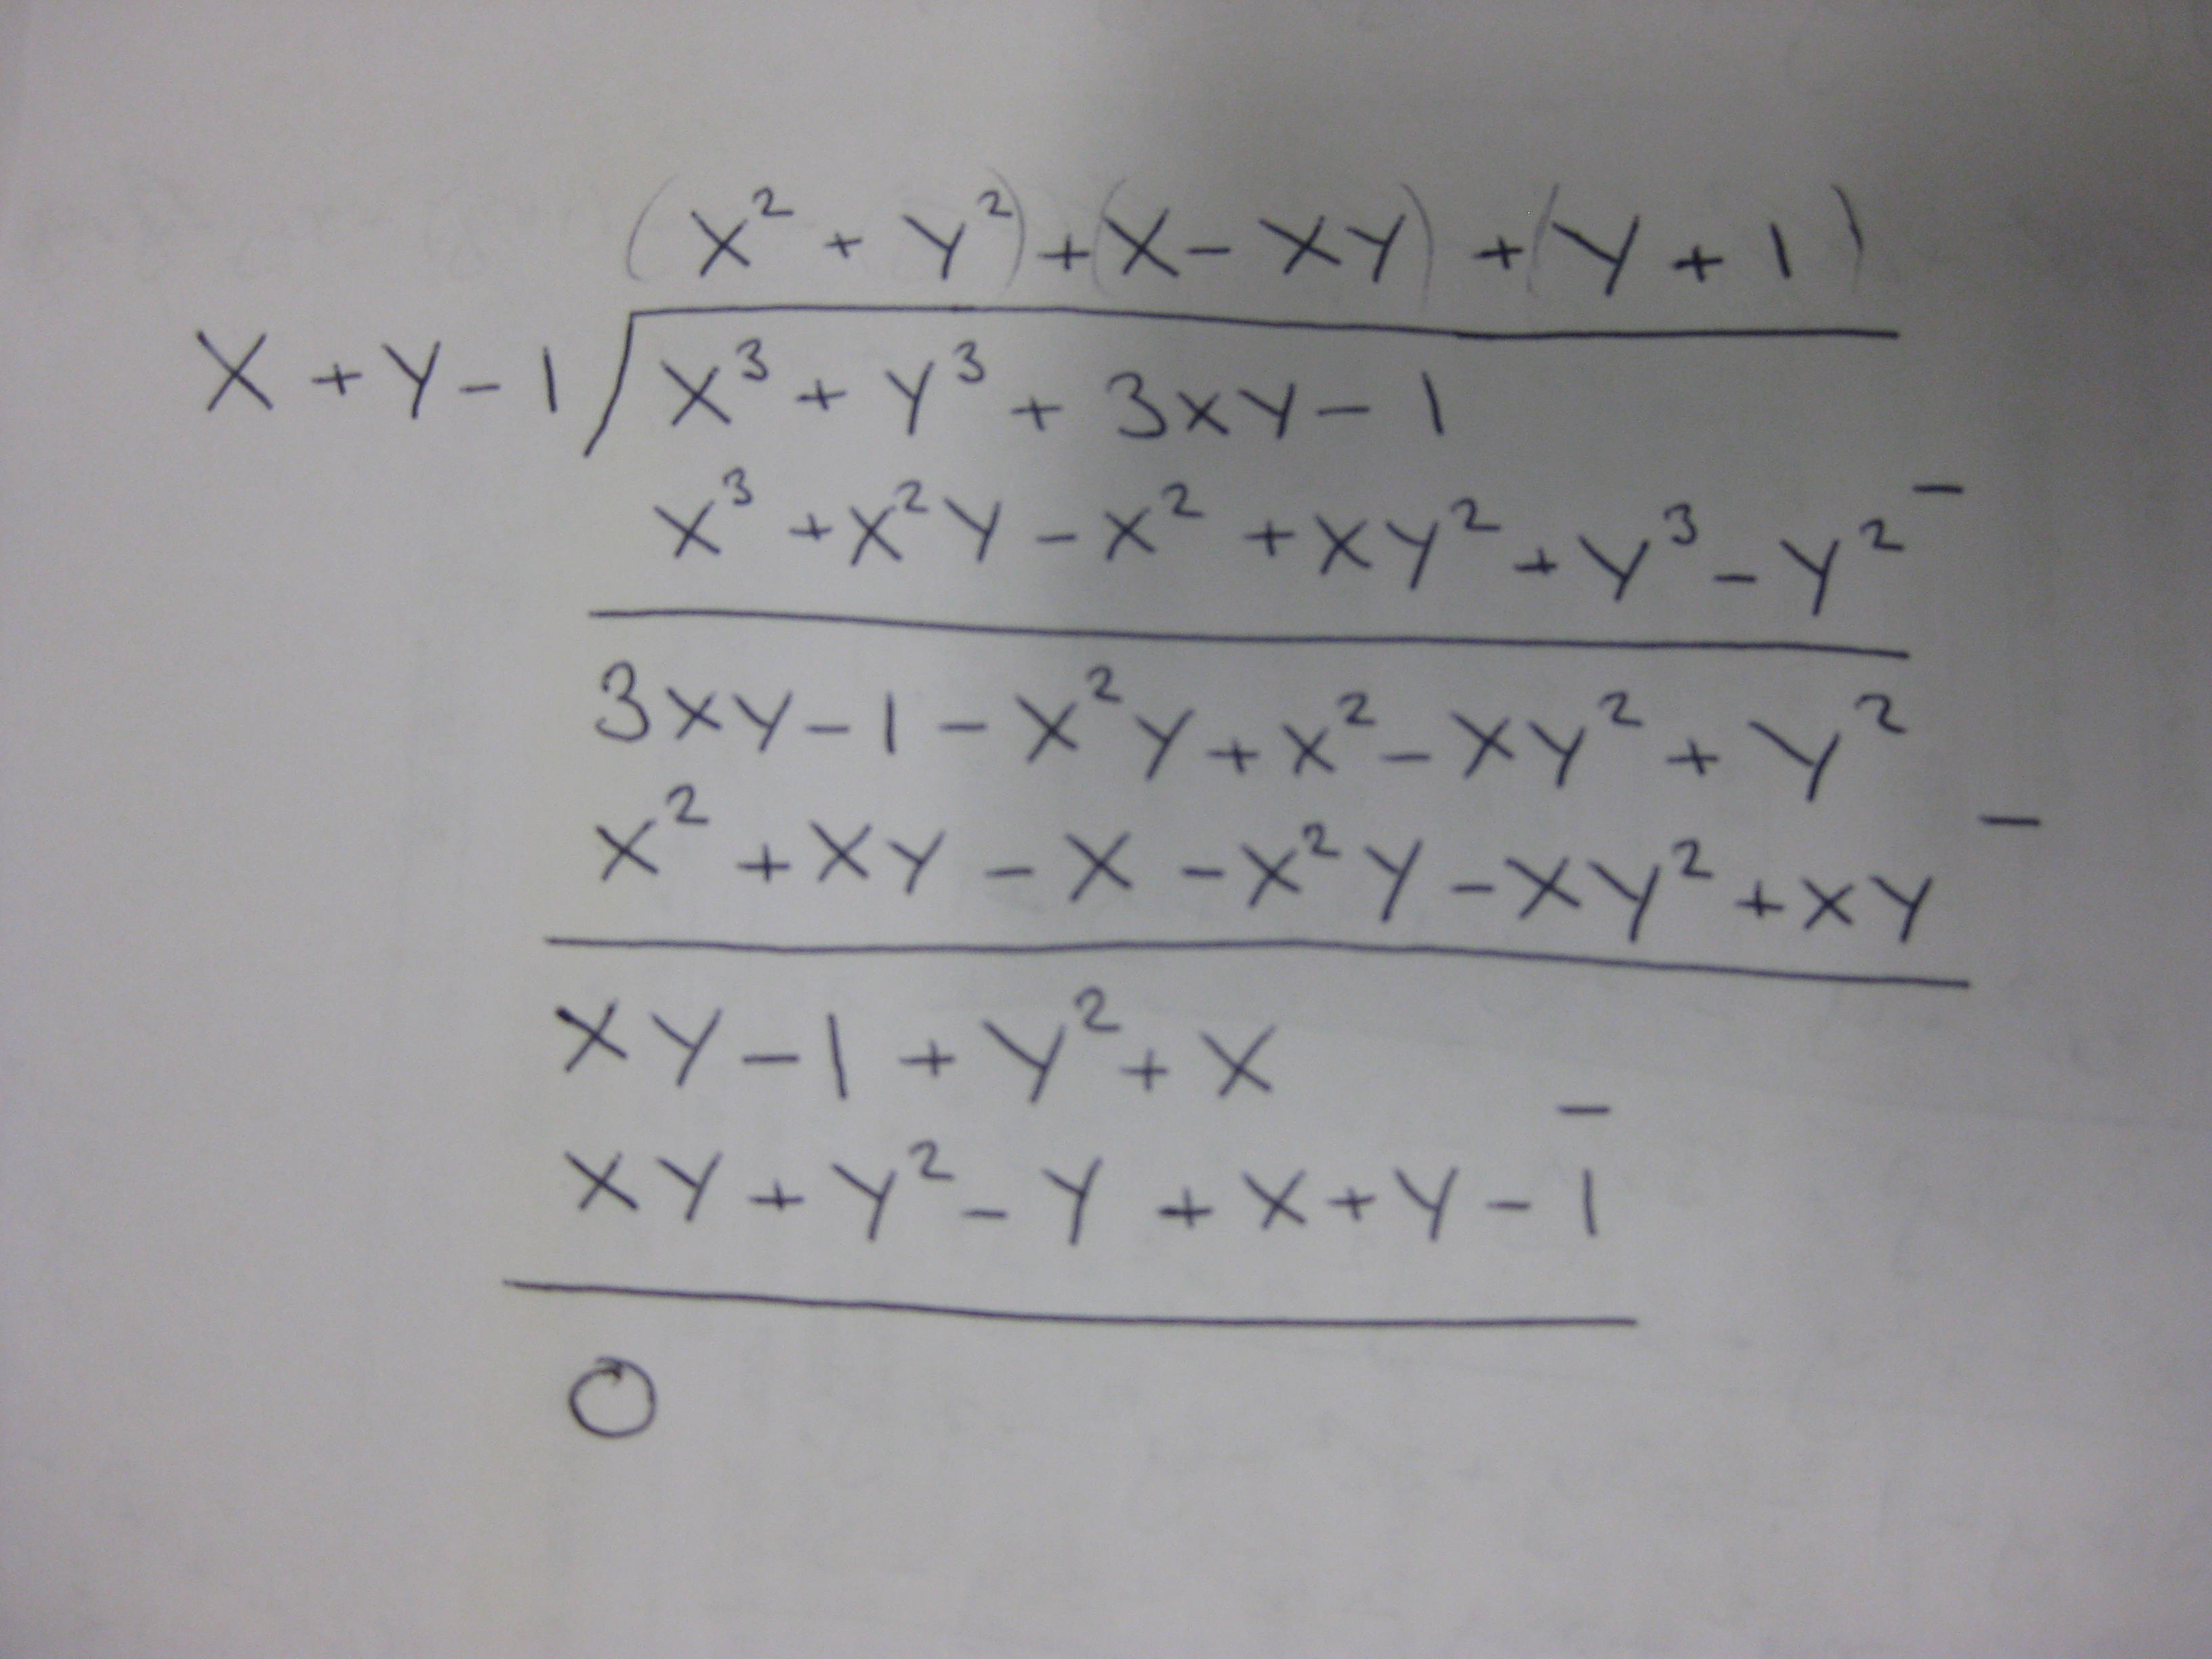 (X² + Y²) + (X - XY) + (Y + 1)
X + Y - 1 / X³ + Y³ + 3XY - 1
X³ + X²Y - X² + XY² + Y³ - Y² -
3XY - 1 - X²Y + X² - XY² + Y²
X² + XY - X - X²Y - XY² + XY -
XY - 1 + Y² + X
XY + Y² - Y + X + Y - 1 -
0